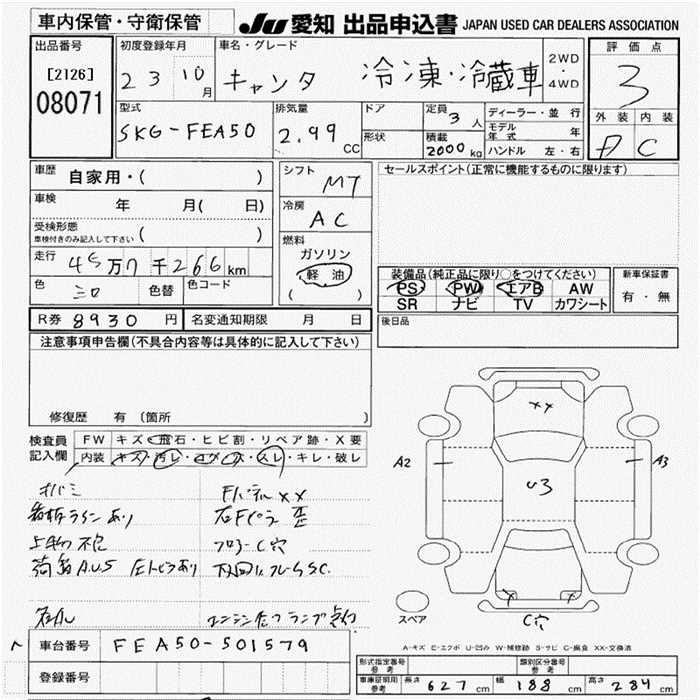 車内保管・守衛保管
JU 愛知 出品申込書 JAPAN USED CAR DEALERS ASSOCIATION
出品番号
[2126]
08071
初度登録年月
23 10月
車名・グレード
キャンター 冷凍・冷蔵車
2WD・4WD
評価点
3
外装 内装
D C
型式
SKG-FEA50
排気量
2.99 CC
ドア
形状
定員 3 人
積載 2000 kg
ディーラー・並行
モデル年式 年
ハンドル 左・右
車歴 自家用・( )
車検 年 月( 日)
受検形態
車検付きのみ記入して下さい ( )
走行 45万7千266km
色 シロ 色替 色コード
シフト MT
冷房 AC
燃料
ガソリン
軽油
( )
セールスポイント(正常に機能するものに限ります)
装備品(純正品に限り○をつけてください)
PS PW エアB AW
SR ナビ TV カワシート
新車保証書
有・無
R券 8930 円 名変通知期限 月 日
後日品
注意事項申告欄(不具合内容等は具体的に記入して下さい)
修復歴 有(箇所 )
検査員記入欄
FW キズ・飛石・ヒビ割・リペア跡・X要
内装 キズ・汚レ・コゲ・穴・スレ・キレ・破レ
看板ラインあり
上物 不良
FパネルXX
右Fピラ 歪
フロアC穴
下回り、フレームSC
エンジン
ランプ点灯
XX
A2
U3
A3
X X
C穴
スペア
A-キズ E-エクボ U-凹み W-補修跡 S-サビ C-腐食 XX-交換済
車台番号 FEA50-501579
登録番号
形式指定番号 参考
類別区分番号 参考
車庫証明用 参考 長さ 627 cm 幅 188 cm 高さ 284 cm